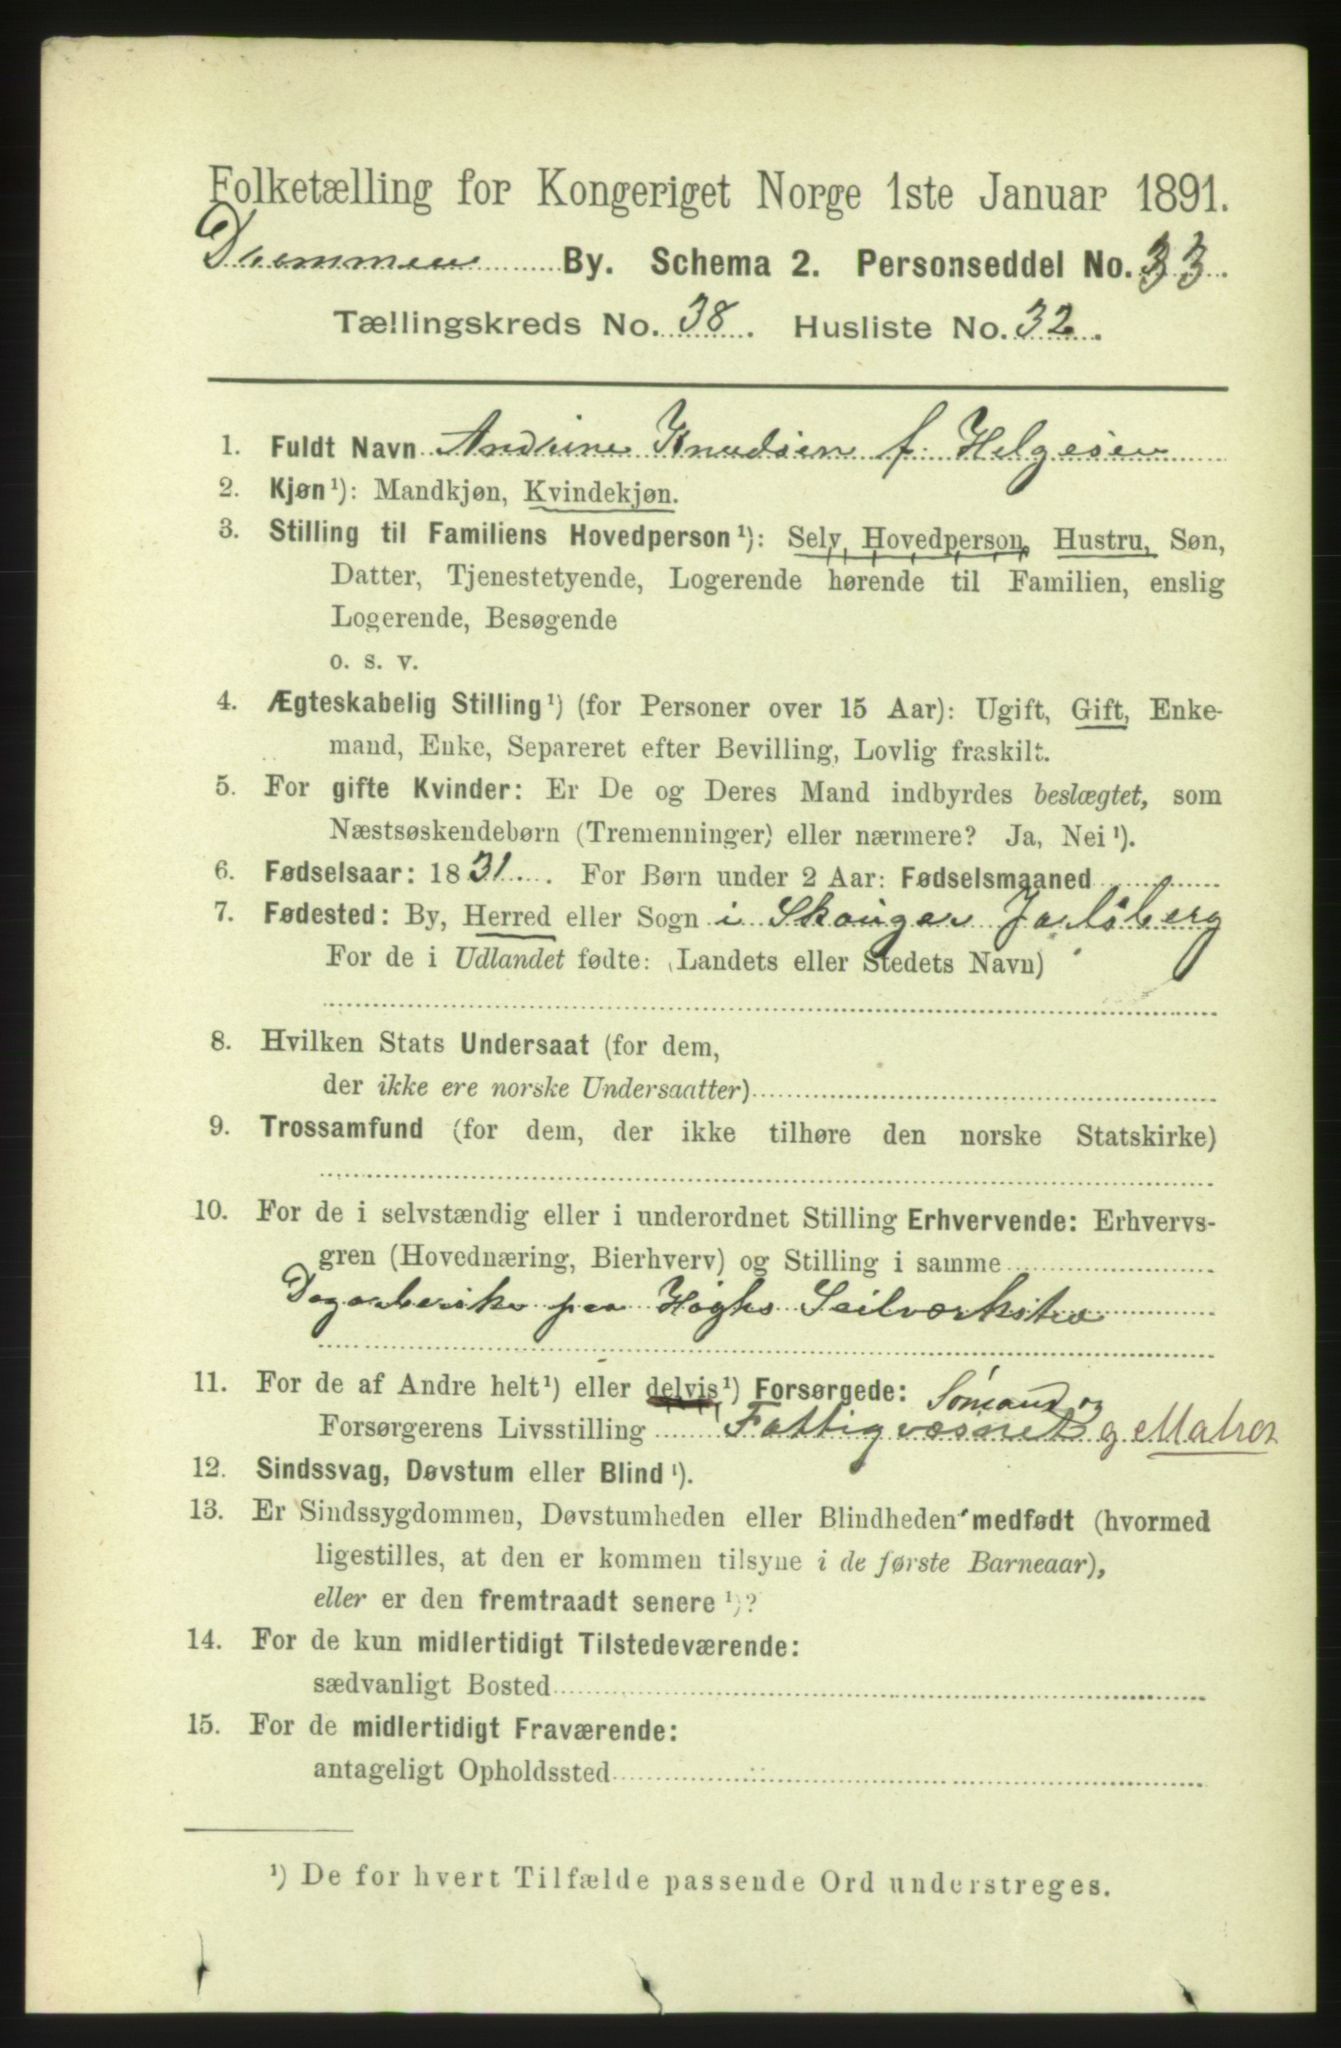 Folketælling for Kongeriget Norge 1ste Januar 1891.
Drammen By. Schema 2. Personseddel No. 33.
Tællingskreds No. 38. Husliste No. 32.
1. Fuldt Navn Andrine Knudsen f. Helgesen
2. Kjøn ¹): Mandkjøn, Kvindekjøn.
3. Stilling til Familiens Hovedperson ¹): Selv, Hovedperson, Hustru, Søn,
Datter, Tjenestetyende, Logerende hørende til Familien, enslig
Logerende, Besøgende
o. s. v.
4. Ægteskabelig Stilling ¹) (for Personer over 15 Aar): Ugift, Gift, Enke-
mand, Enke, Separeret efter Bevilling, Lovlig fraskilt.
5. For gifte Kvinder: Er De og Deres Mand indbyrdes beslægtet, som
Næstsøskendebørn (Tremenninger) eller nærmere? Ja, Nei ¹).
6. Fødselsaar: 1831. For Børn under 2 Aar: Fødselsmaaned
7. Fødested: By, Herred eller Sogn i Skouger Jarlsberg
For de i Udlandet fødte: (Landets eller Stedets Navn)
8. Hvilken Stats Undersaat (for dem,
der ikke ere norske Undersaatter)
9. Trossamfund (for dem, der ikke tilhøre den norske Statskirke)
10. For de i selvstændig eller i underordnet Stilling Erhvervende: Erhvervs-
gren (Hovednæring, Bierhverv) og Stilling i samme
paa Høghs Seilværksted
11. For de af Andre helt ¹) eller delvis ¹) Forsørgede: Sømand og
Forsørgerens Livsstilling Fattigvæsnet g Matros
12. Sindssvag, Døvstum eller Blind ¹).
13. Er Sindssygdommen, Døvstumheden eller Blindheden medfødt (hvormed
ligestilles, at den er kommen tilsyne i de første Barneaar),
eller er den fremtraadt senere ¹)?
14. For de kun midlertidigt Tilstedeværende:
sædvanligt Bosted
15. For de midlertidigt Fraværende:
antageligt Opholdssted
¹) De for hvert Tilfælde passende Ord understreges.